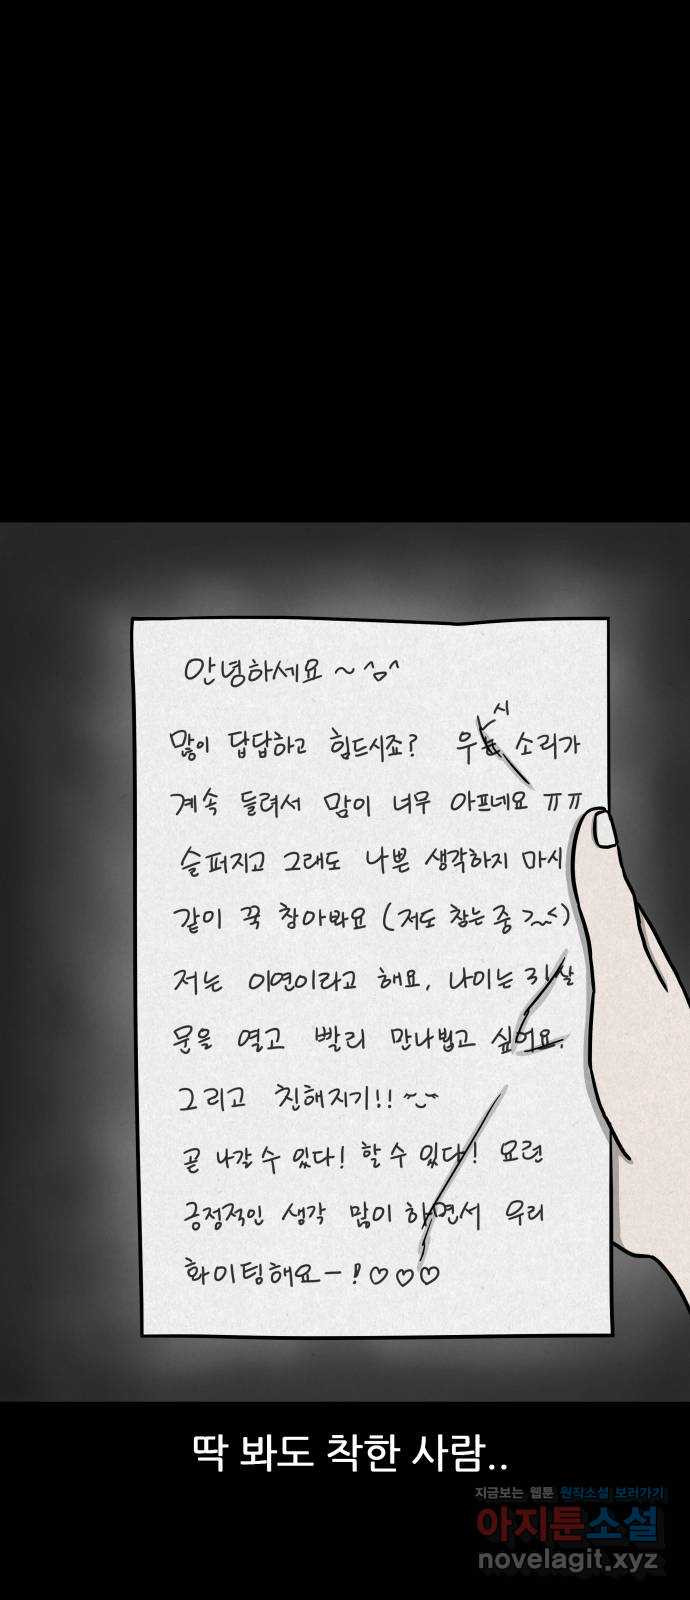 안녕하세요~^ㅁ^
많이 답답하고 힘드시죠? 우시는 소리가
계속 들려서 맘이 너무 아프네요 ㅠㅠ
슬퍼지고 그래도 나쁜 생각하지 마시
같이 꾹 참아봐요 (저도 참는 중
저는 이연이라고 해요, 나이는 살
문을 열고 빨리 만나뵙고 싶어요.
그리고 친해지기!!
곧 나갈 수 있다! 할 수 있다! 요런
긍정적인 생각 많이 하면서 우리
화이팅해요-!♡♡♡
딱 봐도 착한 사람..
지금보는 웹툰 원작소설 보러가기
아지툰소설
novelagit.xyz